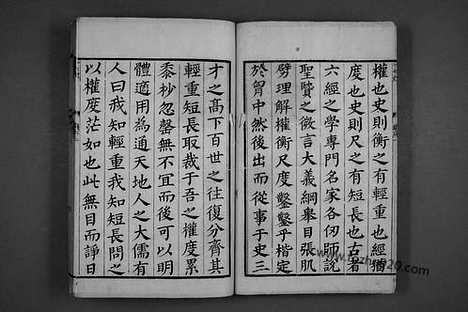 權也史則衡之有輕重也經猶
度也史則尺之有短長也古者
六經之學專門名家各仞師説
聖賢之微言大義綱舉目張肌
劈理解權衡尺度鑿鑿乎楷定
於胷中然後出而從事于史三
才之高下百世之往復分齊其
輕重短長取裁于吾之權度累
黍杪忽罄無不宜而後可以明
體適用為通天地人之大儒有
人曰我知輕重我知短長問之
以權度茫如也此無目而諍日